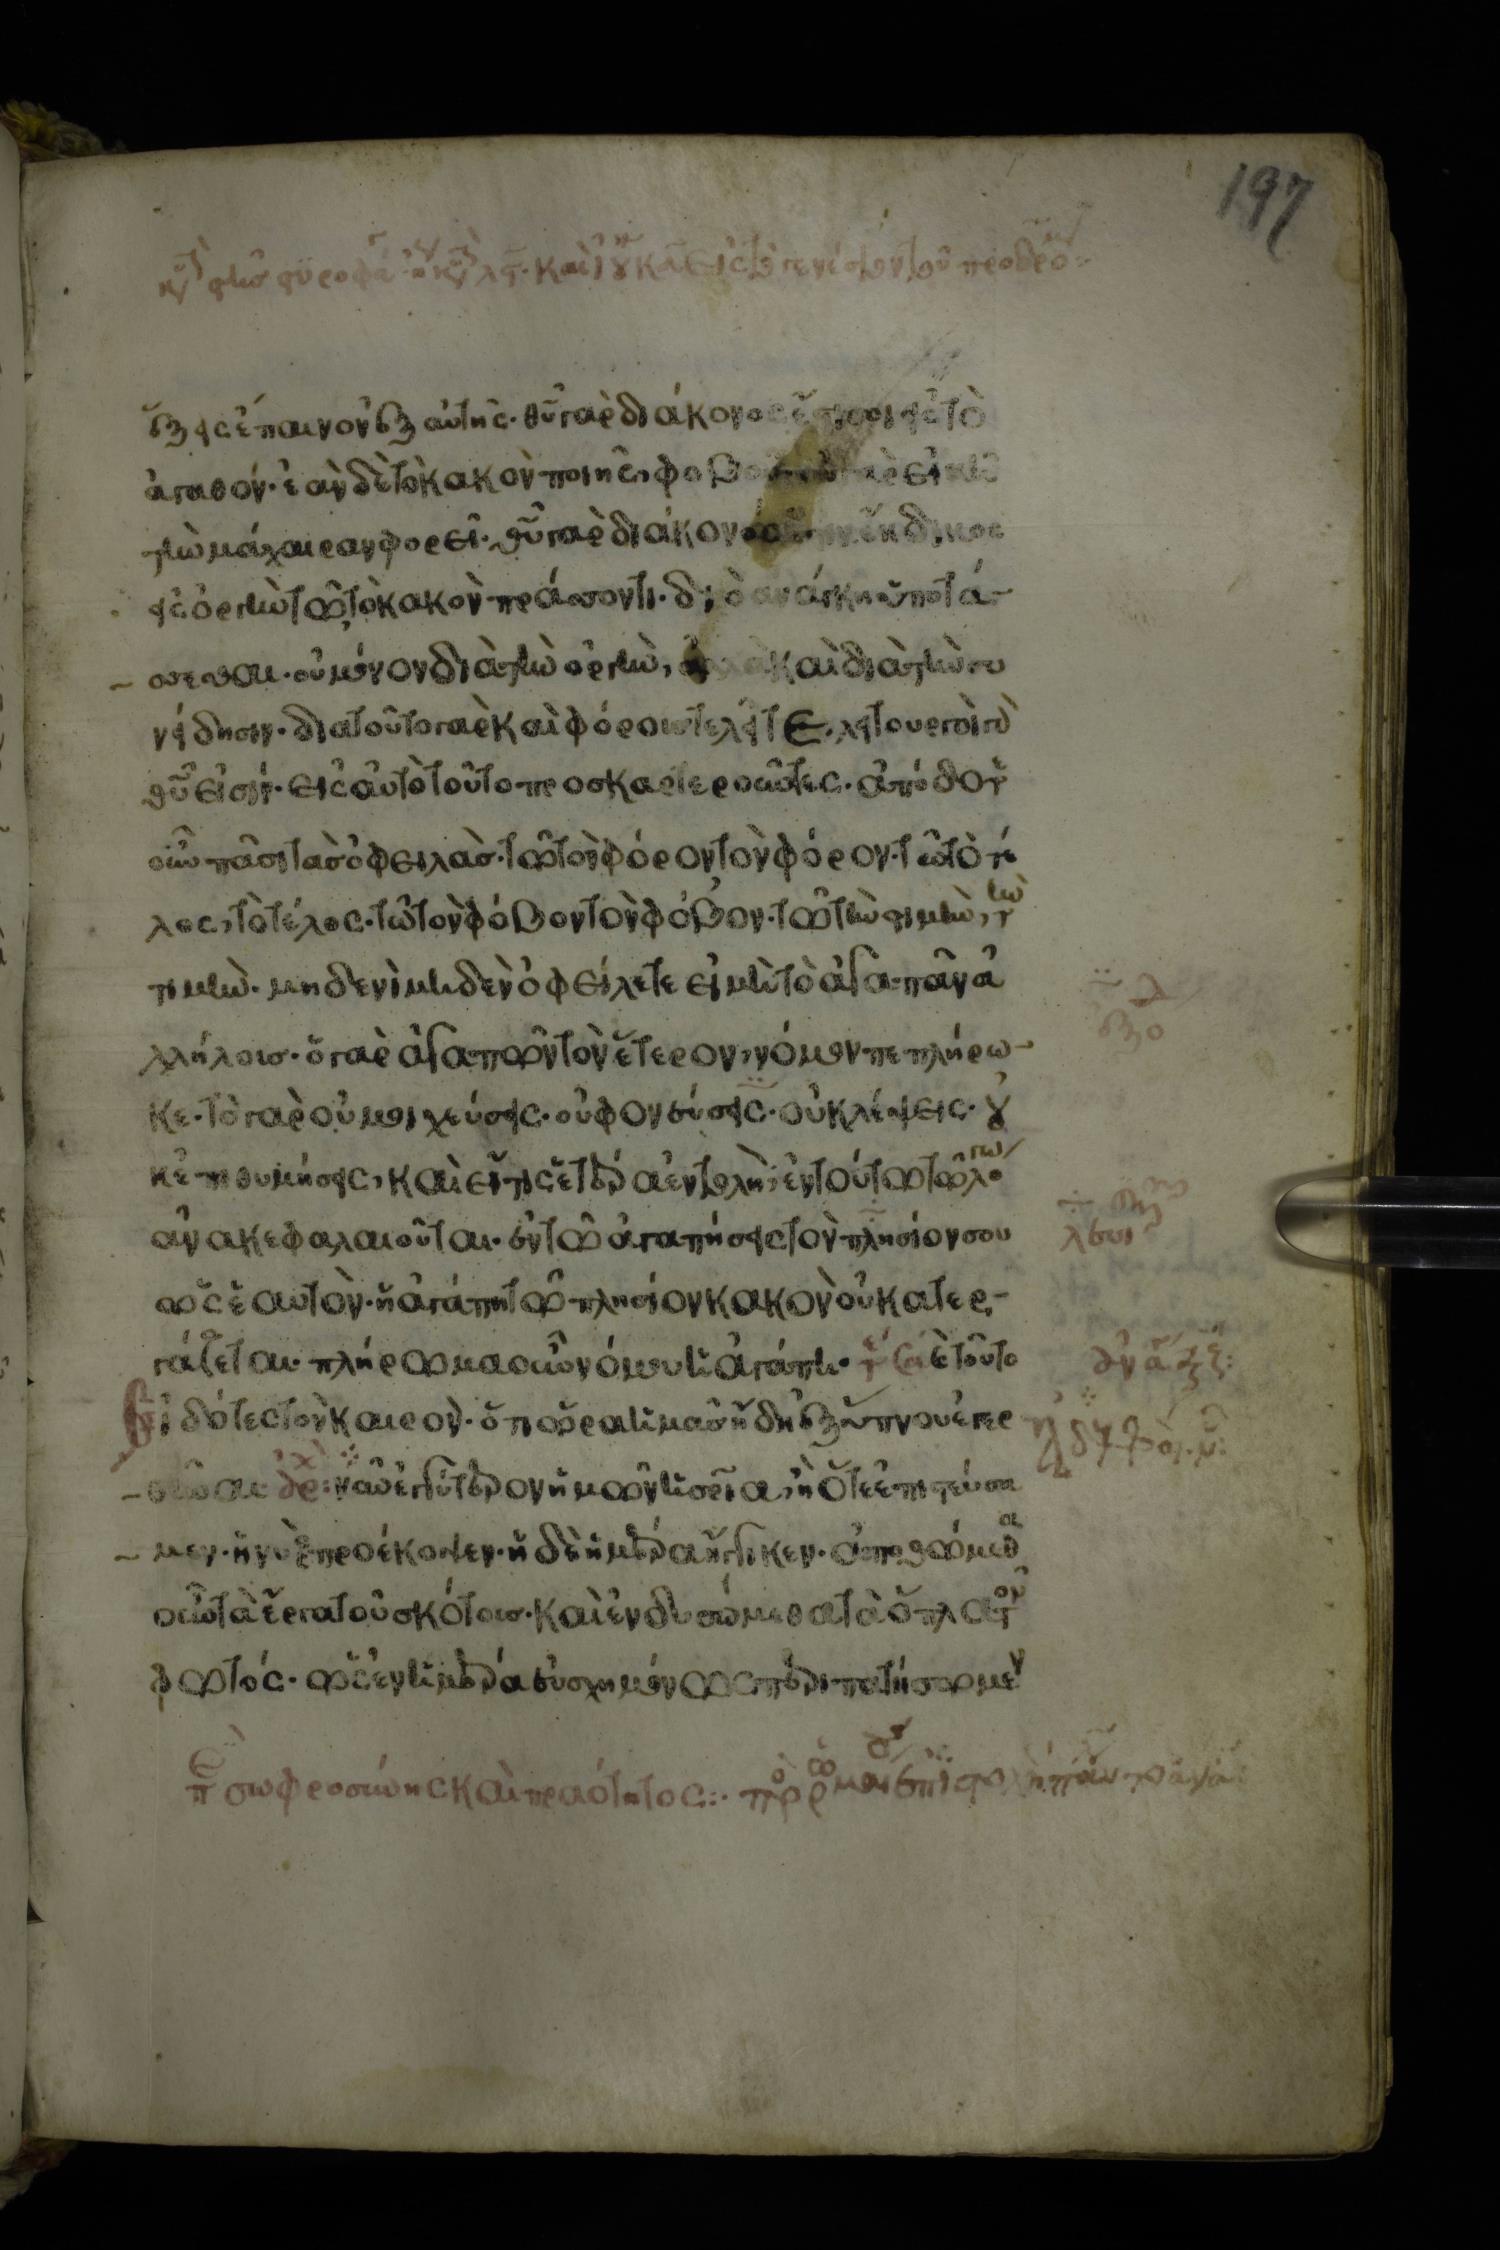 197
ἕξεις ἔπαινον ἐξ αὐτῆς· θῦ γὰρ διάκονος ἐστι σοι εἰς τὸ
ἀγαθόν· ἐὰν δὲ τὸ κακὸν ποιῆς, φοβοῦ οὐ γὰρ εἰκῆ
τὴν μάχαιραν φορεῖ· θῦ γὰρ διάκονός ἐστιν ἔκδικος
εἰς ὀργὴν τῶ τὸ κακὸν πράσσοντι· διὸ ἀνάγκη ὑποτά
σσεσθαι· οὐ μόνον διὰ τὴν ὀργὴν, ἀλλὰ καὶ διὰ τὴν συ
νείδησιν· διὰ τοῦτο γὰρ καὶ φόρους τελεῖτε· λειτουργοὶ γὰρ
θῦ εἰσίν· εἰς αὐτὸ τοῦτο προσκαρτεροῦντες· ἀπόδοτε
οὖν πᾶσι τὰς ὀφειλὰς· τῶ τὸν φόρον τὸν φόρον· τῶ τὸ τέ
λος, τὸ τέλος· τῶ τὸν φόβον τὸν φόβον· τῶ τὴν τιμὴν, τὴν
τιμὴν· μηδενὶ μηδὲν ὀφείλετε εἰ μὴ τὸ ἀγαπᾶν ἀ
λλήλους· ὁ γὰρ ἀγαπῶν τὸν ἕτερον, νόμον πεπλήρω
κε· τὸ γὰρ οὐ μοιχεύσεις· οὐ φονεύσεις· οὐ κλέψεις· οὐ
κ ἐπιθυμήσεις, καὶ εἴ τις ἑτέρα ἐντολὴ, ἐν τούτω τῶ λόγω
ἀνακεφαλαιοῦται· ἐν τῶ ἀγαπήσεις τὸν πλησίον σου
ὡς ἑαυτὸν· ἡ ἀγάπη τῶ πλησίον κακὸν οὐκ ατερ
γάζεται· πλήρωμα οὖν νόμου ἡ ἀγάπη· καὶ τοῦτο
εἰδότες τὸν καιρὸν· ὅτι ὥρα ἡμᾶς ἤδη ἐξ ὕπνου ἐγερ
θῆναι νῦν ἐγγύτερον ἡμῶν ἡ σρία, ἢ ὅτε ἐπιστεύσα
μεν· ἡ νὺξ προέκοψεν· ἡ δὲ ἡμέρα ἤγγικεν· ἀποθώμεθα
οὖν τὰ ἔργα τοῦ σκότους· καὶ ἐνδυσώμεθα τὰ ὅπλα τοῦ
φωτός· ὡς ἐν ἡμέρα εὐσχημόνως περιπατήσωμεν
σωφροσύνης καὶ πραότητος:·